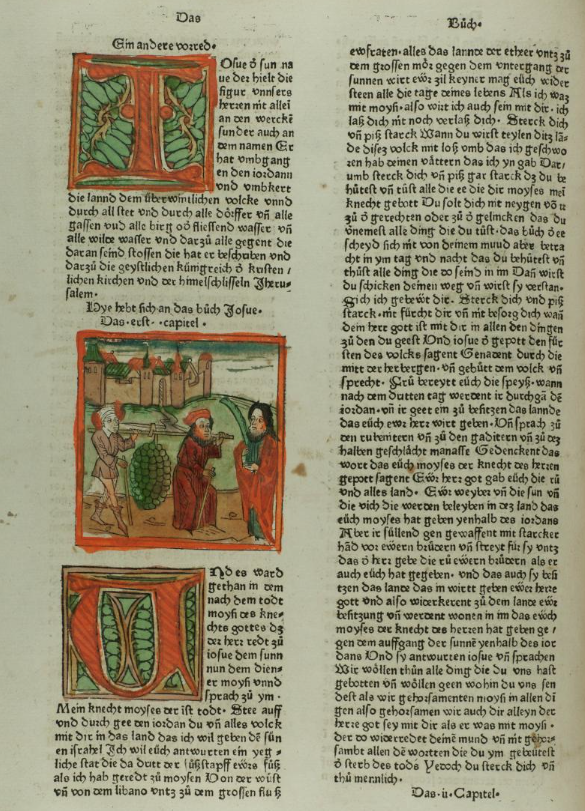 Das
Ein andere vorred·
IOsue ð sun na
ue der hielt die
figur vnnsers
herzen nit allei
an den werckē
sunder auch an
dem namen Er
hat vmbgang
en den iordann
vnd vmbkert
die lannd dem überwintlichen volcke vnnd
durch all stet vnd durch alle dörffer vñ alle
gassen vnd alle birg oð fliessend wasser vñ
alle wilde wasser vnd darzů alle gegent die
daran seind stossen die hat er beschriben vnd
darzů die geystlichen künigreich ð kristen /
lichen kirchen vnd der himelschlisseln Jheru⸗
salem·
Hye hebt sich an das bůch Josue·
Das· erst· ·capitel·
UNd es ward
gethan in dem
nach dem todt
moysi des kne⸗
chts gottes dz
der herr redt zů
iosue dem sunn
nun dem dien⸗
er moysi vnnd
sprach zů ym·
Mein knecht moyses der ist todt· Stee auff
vnd durch gee den iordan du vñ alles volck
mit dir in das land das ich wil geben dē sün
en israhel Ich wil eüch antwurten ein yeg ⸗
liche stat die da dutt der füßstapff ewrs fůß
als ich hab geredt zů moysen Von der wüst
vñ von dem libano vntz zů dem grossen fluß
Bůch·
ewfraten· alles das lannde der etheer vntz zů
dem grossen mör gegen dem vntergang der
sunnen wirt ewr zil keyner mag eüch wider
steen alle die tage deines lebens Als ich waz
mit moysi· also wirt ich auch sein mit dir· ich
laß dich nit noch verlaß dich· Sterck dich
vñ piß starck Wann du wirst teylen ditz lā⸗
de disez volck mit loß vmb das ich geschwo
ren hab deinen vättern das ich yn gab Dar/
umb sterck dich vñ piß gar starck dz du be
hütest vñ tüst alle die ee die dir moyses mei
knecht gebott Du solt dich nit neygen vō ir
zů ð gerechten oder zů ð gelincken das du
vernemest alle ding die du tůst· das bůch ð ee
scheyd sich nit von deinem mund aber betra
cht in ym tag vnd nacht das du behütest vñ
thůst alle ding die do seind in im Dañ wirst
du schicken deinen weg vñ wirst sy verstan·
Sich ich gebewt dir· Sterck dich vnd piß
starck· nit fürcht dir vñ nit besorg dich wañ
dein herr gott ist mit dir in allen den dingen
zů den du geest Und iosue ð gepott den für
sten des volcks sagent Genadent durch die
mitt der herbergen· vñ gebütt dem volck vñ
sprecht· Früe bereytt eüch die speyß· wann
nach dem dritten tag werdent ir durchgā dē
iordan· vñ ir geet ein zů besitzen das lannde
das eüch ewr herr wirt geben· Vñ sprach zů
den rubenitern vñ zů den gaditern vñ zů dez
halben geschlächt manasse Gedenckent das
wort das eüch moyses der knecht des herren
gepott sagend Ewr herr got gab eüch die rů
vnd alles land· Ewr weyber vñ die sun vñ
die vich die werden beleyben in dez land das
eüch moyses hat geben yenhalb des iordans
Aber ir süllend gen gewaffent mit starcker
hād vor ewern brüdern vñ streyt für sy vntz
das ð herr gebe die rů ewern brüdern als er
auch eüch hat gegeben· vnd das auch sy besi
tzen das lande das in wirtt geben ewer herre
gott vnd also widerkerent zů dem lande ewr
besitzung vñ werdent wonen in im das ewch
moyses der knecht des herren hat geben ge /
gen dem auffgang der sunnē yenhalb des ior
dans Und sy antwurten iosue vñ sprachen
Wir wöllen thůn alle ding die du vns hast
gebotten vñ wöllen geen wohin du vns sen
dest als wir gehorsamenten moysi in allen di
gen also gehorsamen wir auch dir alleyn der
herre got sey mit dir als er was mit moysi·
der do widerredet deinē mund vñ nit gehor⸗
sambt allen dē wortten die du ym gebeütest
ð sterb des tods Yedoch du sterck dich vñ
thů mennlich·
Das· ii· Capitel·